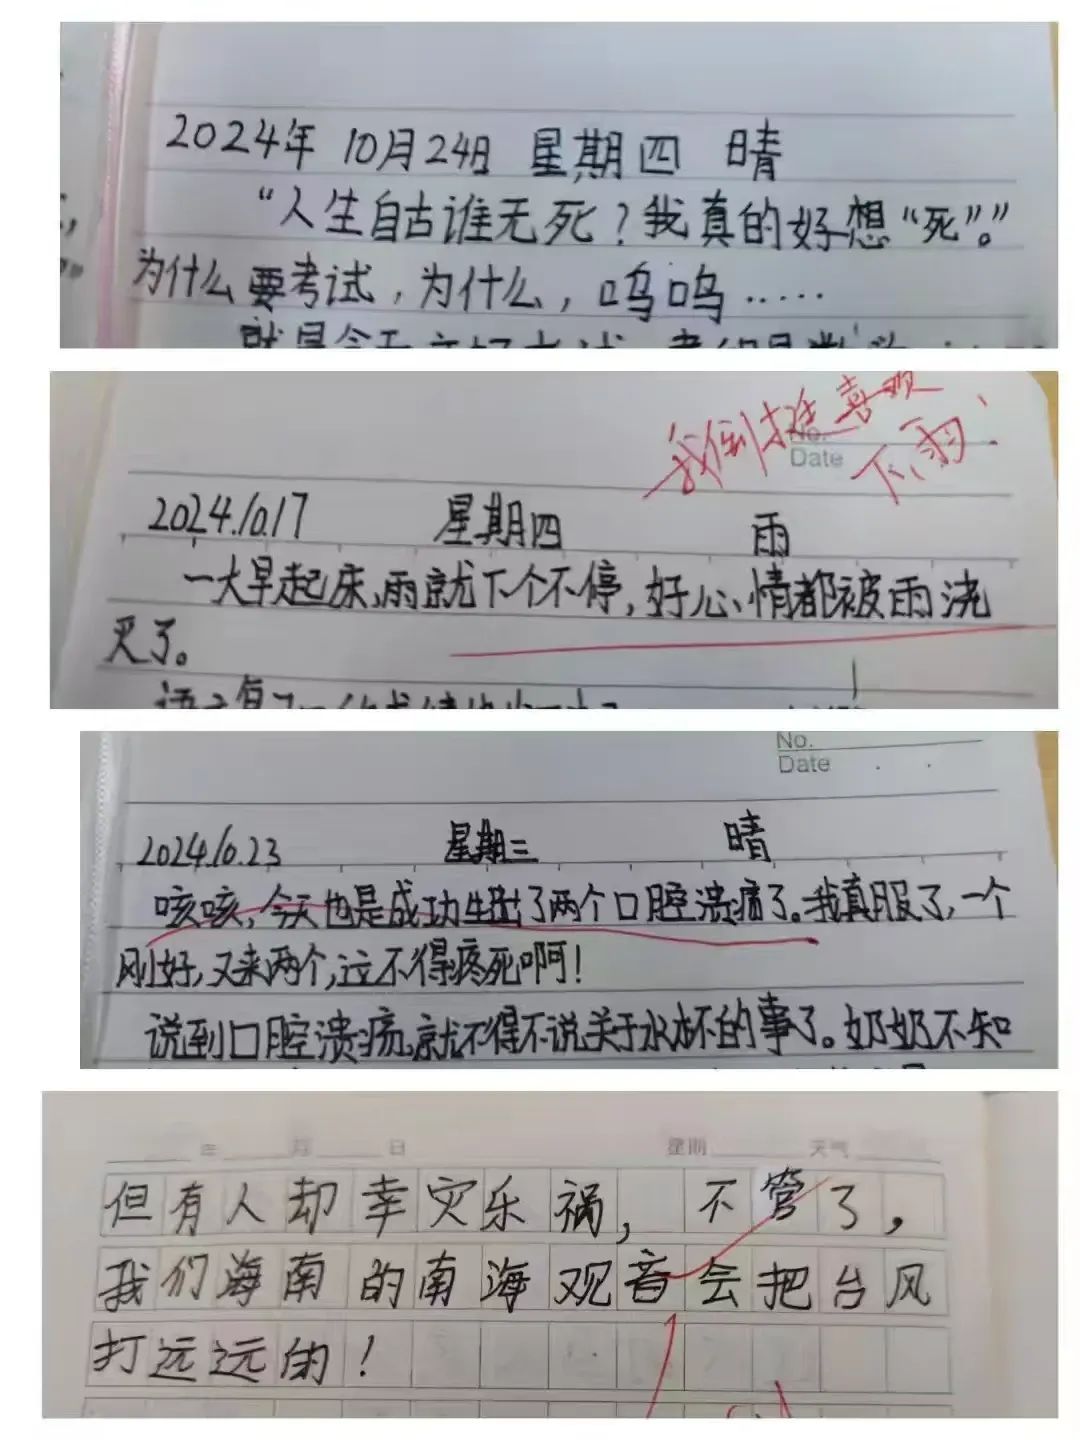 2024年 10月24日 星期四 晴
“人生自古谁无死？我真的好想“死”。”
为什么要考试，为什么，呜呜……
我倒挺喜欢
下雨！
No.
Date
2024.10.17 星期四 雨
一大早起床，雨就下个不停，好心情都被雨浇
灭了。
No.
Date
2024.10.23 星期三 晴
咳咳，今天也是成功生出了两个口腔溃疡了。我真服了，一个
刚好，又来两个，这不得疼死啊！
说到口腔溃疡，就不得不说关于水杯的事了。奶奶不知
年 月 日 星期 天气
但有人却幸灾乐祸，不管了，
我们海南的南海观音会把台风
打远远的！